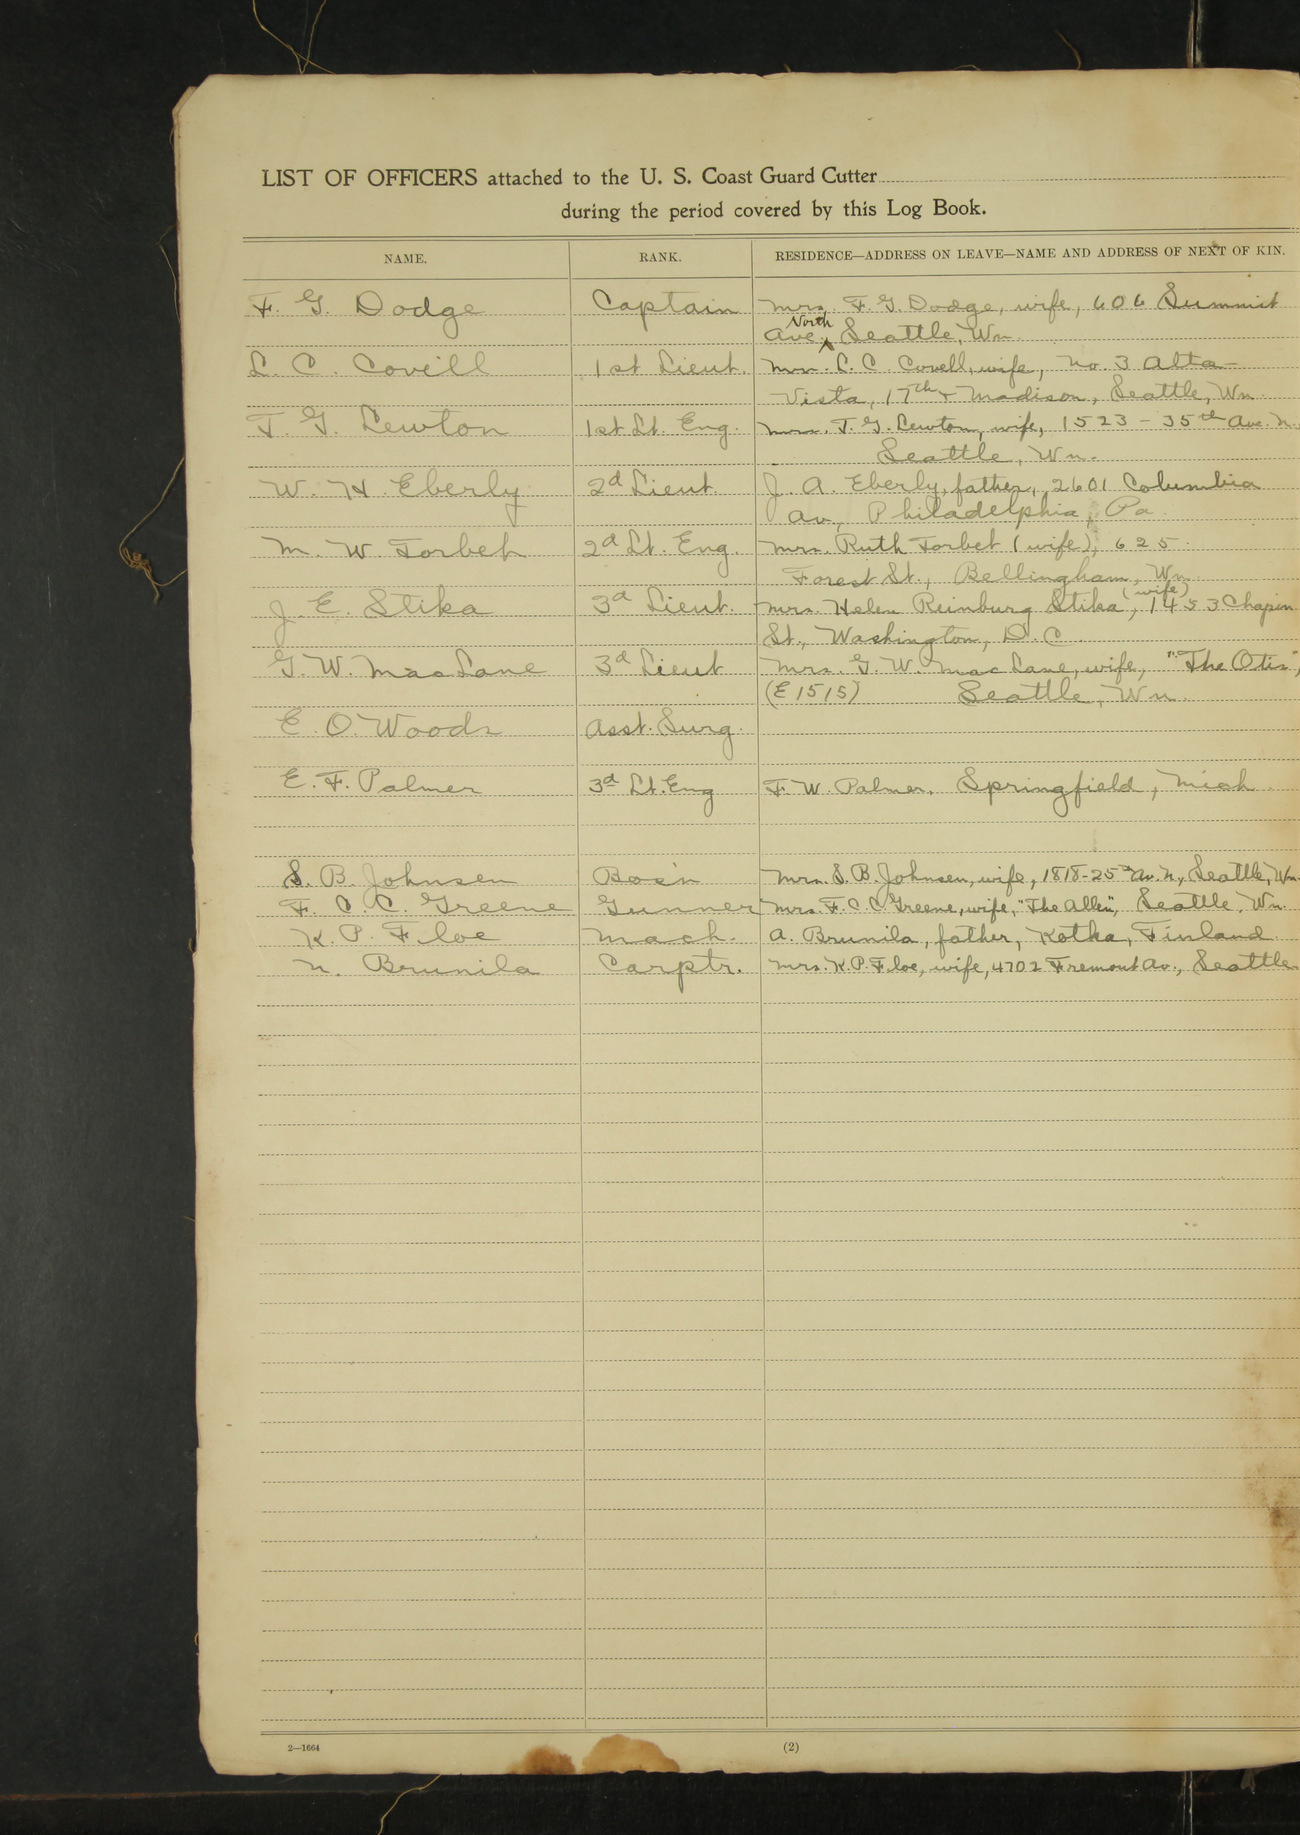 LIST OF OFFICERS attached to the U. S. Coast Guard Cutter
during the period covered by this Log Book.
NAME. RANK. RESIDENCE—ADDRESS ON LEAVE—NAME AND ADDRESS OF NEXT OF KIN.
F. G. Dodge Captain Mrs. F. G. Dodge, wife, 606 Summit
Ave. North, Seattle, Wn.
L. C. Covell 1st Lieut. Mrs. L. C. Covell, wife, No. 3 Alta
Vista, 17th & Madison, Seattle, Wn.
T. G. Lewton 1st Lt. Eng. Mrs. T. G. Lewton, wife, 1523 - 35th Ave. N.
Seattle, Wn.
W. H. Eberly 2d Lieut. J. A. Eberly, father, 2601 Columbia
Av., Philadelphia, Pa.
M. W. Torbet 2d Lt. Eng. Mrs. Ruth Torbet (wife), 625
Forest St., Bellingham, Wn.
J. E. Stika 3d Lieut. Mrs. Helen Reinburg Stika, (wife) 1453 Chapin
St., Washington, D. C.
G. W. MacLane 3d Lieut Mrs. G. W. MacLane, wife, "The Otis",
(E 1515) Seattle, Wn.
E. O. Woods Asst. Surg.
E. F. Palmer 3d Lt. Eng F. W. Palmer, Springfield, Mich.
S. B. Johnsen Bos'n Mrs. S. B. Johnsen, wife, 1818-25th Av. N., Seattle, Wn.
F. C. C. Greene Gunner Mrs. F. C. C. Greene, wife, "The Allen", Seattle, Wn.
K. P. Floe Mach. A. Brunila, father, Kotka, Finland
N. Brunila Carptr. Mrs. K. P. Floe, wife, 4702 Fremont Av., Seattle
2—1664 (2)